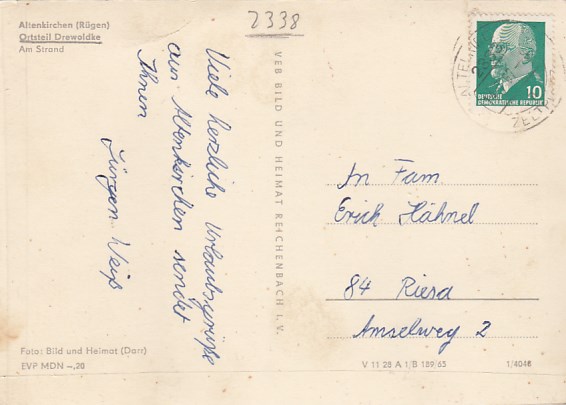 Altenkirchen (Rügen)
Ortsteil Drewoldke
Am Strand
2338
Viele herzliche Urlaubsgrüße
aus Altenkirchen sendet
Ihnen
Jürgen Weiß
VEB BILD UND HEIMAT REICHENBACH I. V.
10
DEUTSCHE
DEMOKRATISCHE REPUBLIK
An Fam.
Erich Hähnel
84 Riesa
Amselweg 2
Foto: Bild und Heimat (Darr)
EVP MDN –,20
V 11 28 A 1/B 129/65
1/4048